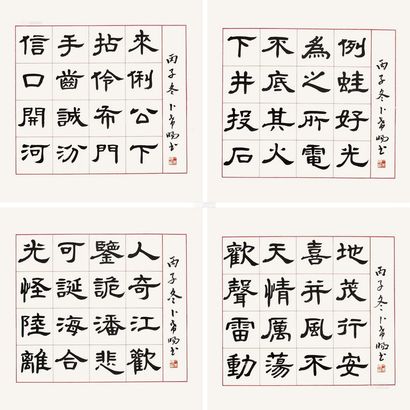 丙子冬卜希暘書
來俐公下
拈伶希門
手齒誠汾
信口開河
丙子冬卜希暘書
例蛙好光
為之所電
不底其火
下井投石
丙子冬卜希暘書
人奇江歡
鑒詭潘悲
可誕海合
光怪陸離
丙子冬卜希暘書
地茂行安
喜并風不
天情厲蕩
歡聲雷動